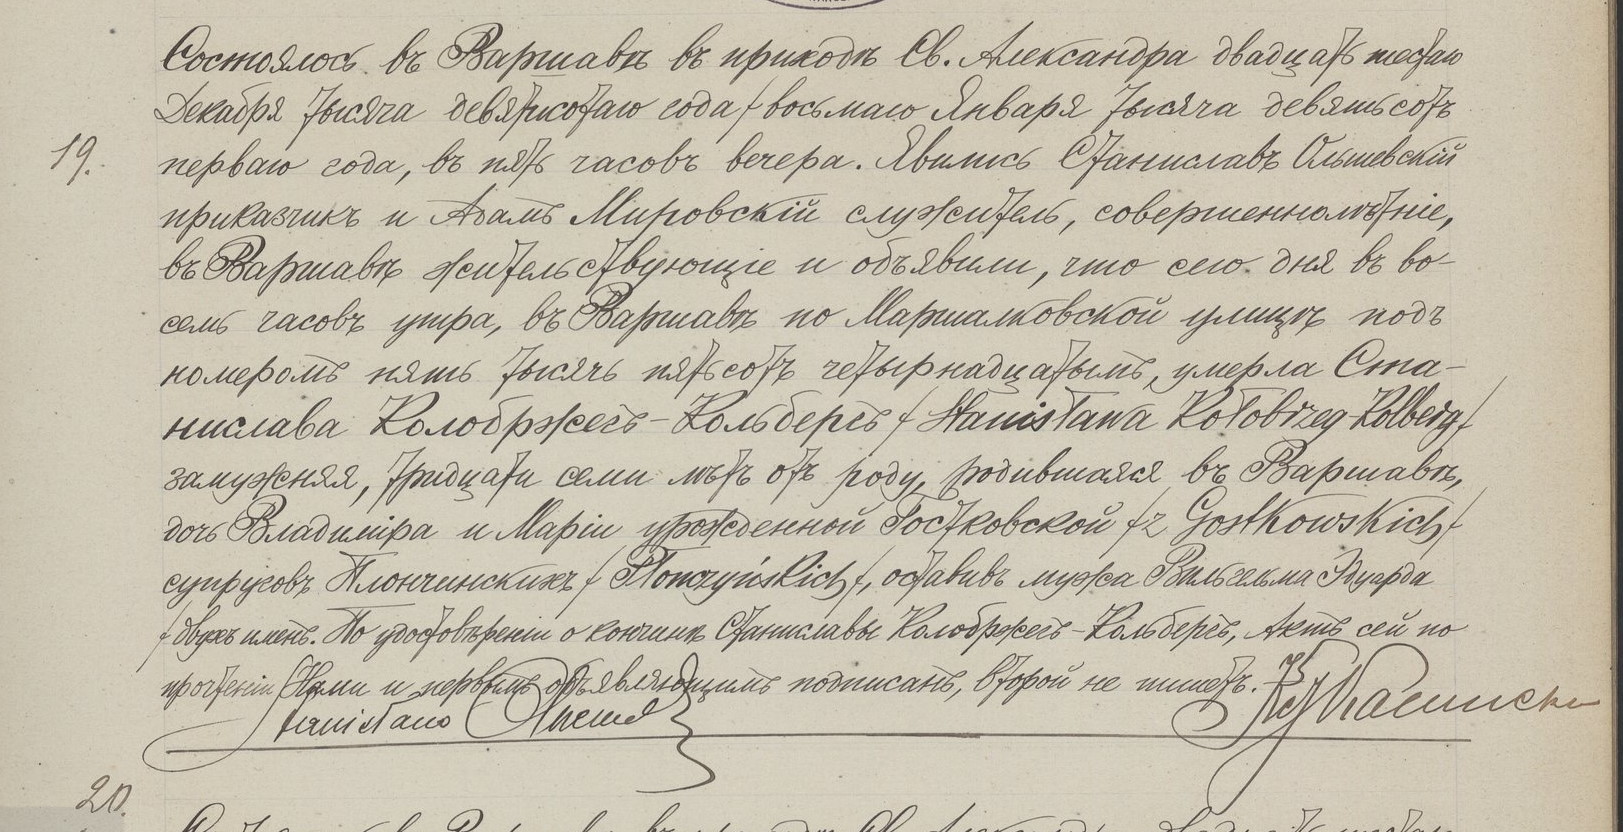 Состоялось въ Варшавѣ въ приходѣ Св. Александра двадцать шестаго
Декабря тысяча девятисотаго года / восьмаго Января тысяча девятьсотъ
19.
перваго года, въ пять часовъ вечера. Явились Станиславъ Ольшевскій
приказчикъ и Адамъ Мировскій служитель, совершеннолѣтніе,
въ Варшавѣ жительствующіе и объявили, что сего дня въ во-
семь часовъ утра, въ Варшавѣ по Маршалковской улицѣ подъ
номеромъ пять тысячъ пятьсотъ четырнадцатымъ, умерла Ста-
нислава Колобржегъ-Кольбергъ / Stanisława Kołobrzeg-Kolberg /
замужняя, тридцати семи лѣтъ отъ роду, родившаяся въ Варшавѣ,
дочь Владиміра и Маріи урожденной Гостковской / z Gostkowskich /
супруговъ Плончинскихъ / Płonczyńskich /, оставивъ мужа Вильгельма Эдуарда
/ двухъ именъ. По удостовѣреніи о кончинѣ Станиславы Колобржегъ-Кольбергъ, Актъ сей по
прочтеніи Нами и первымъ объявляющимъ подписанъ, второй не пишетъ.
Stanisław
20.